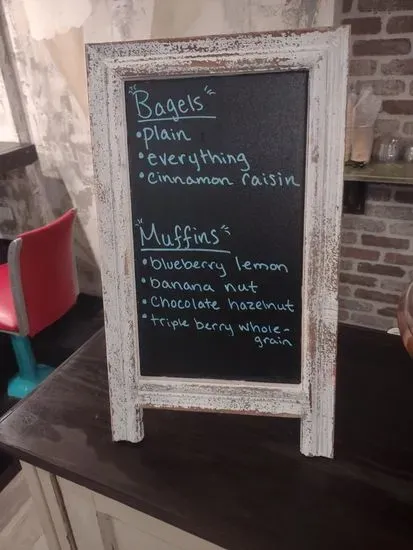 Bagels
• plain
• everything
• cinnamon raisin
Muffins
• blueberry lemon
• banana nut
• Chocolate hazelnut
• triple berry whole-
grain